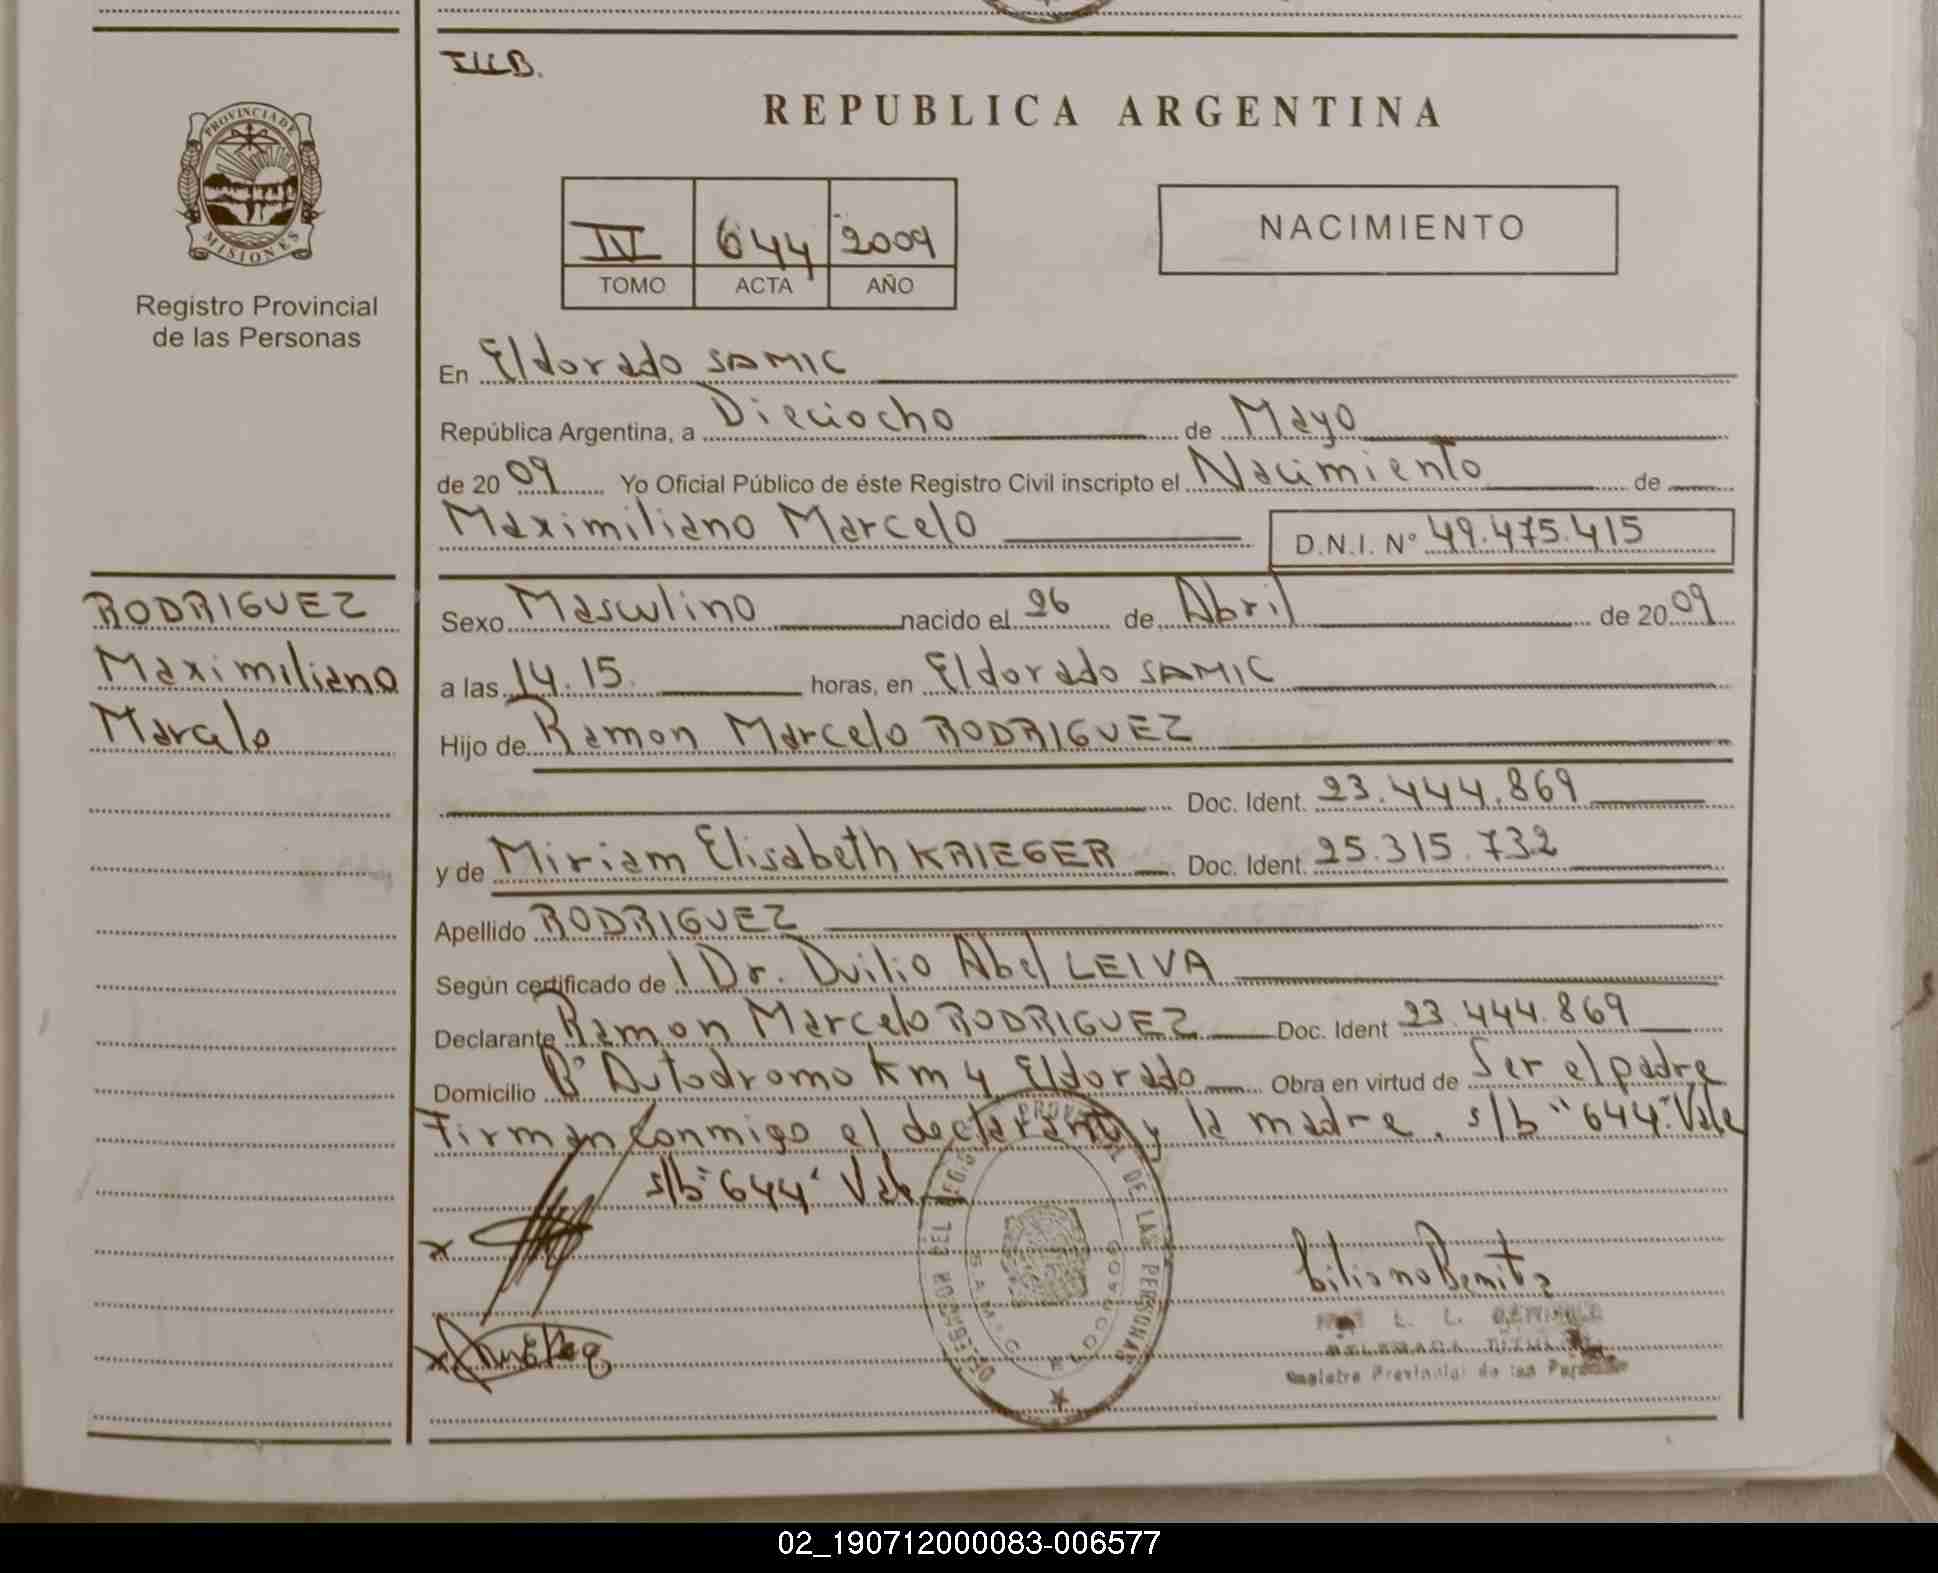 I.L.B.
PROVINCIA DE
MISIONES
Registro Provincial
de las Personas
REPUBLICA ARGENTINA
IV 644 2009
TOMO ACTA AÑO
NACIMIENTO
En Eldorado SAMIC
República Argentina, a Dieciocho de Mayo
de 2009 Yo Oficial Público de éste Registro Civil inscripto el Nacimiento de
Maximiliano Marcelo D.N.I. N° 49.475.415
RODRIGUEZ
Maximiliano
Marcelo
Sexo Masculino nacido el 26 de Abril de 2009
a las 14.15. horas, en Eldorado SAMIC
Hijo de Ramon Marcelo RODRIGUEZ
Doc. Ident. 23.444.869
y de Miriam Elisabeth KRIEGER Doc. Ident. 25.315.732
Apellido RODRIGUEZ
Según certificado de l Dr. Duilio Abel LEIVA
Declarante Ramon Marcelo RODRIGUEZ Doc. Ident 23.444.869
Domicilio B° Autodromo Km 4 Eldorado Obra en virtud de Ser el padre
Firman conmigo el declarante y la madre. s/b "644" Vale
s/b "644" Vale
PROVINCIAL DE LAS PERSONAS
SAMIC ELDORADO
Registro Provincial de las Personas
02_190712000083-006577